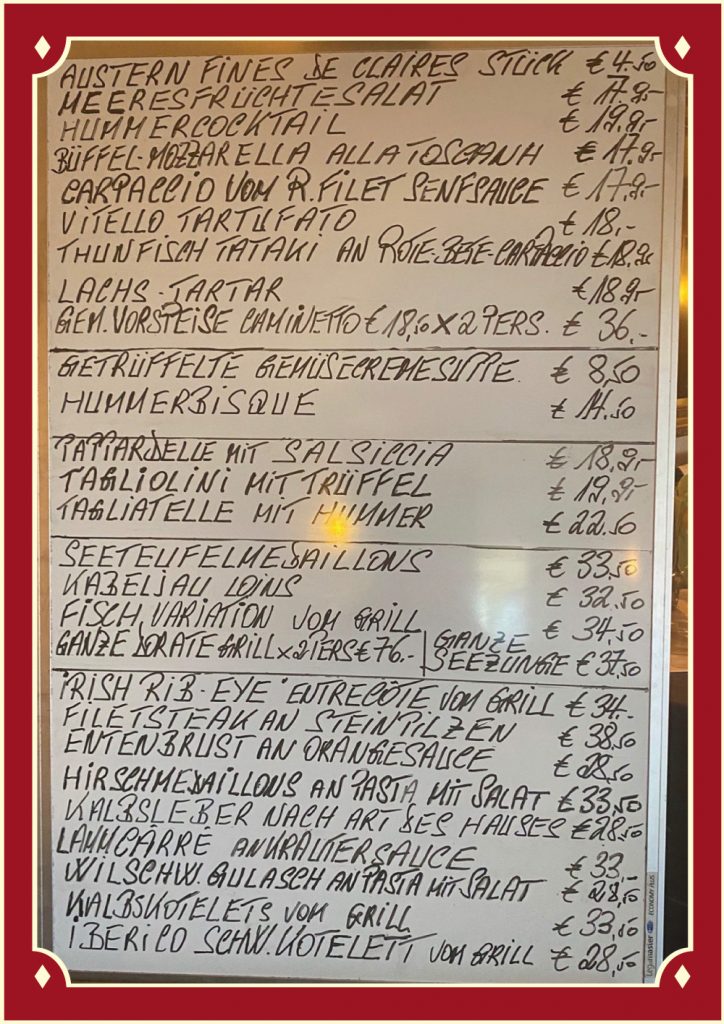 AUSTERN FINES DE CLAIRES STÜCK € 4.50
MEERESFRÜCHTESALAT € 17.9,-
HUMMERCOCKTAIL € 19.9,-
BÜFFEL-MOZZARELLA ALLA TOSCANA € 17.9,-
CARPACCIO VOM R.FILET SENFSAUCE € 17.9,-
VITELLO TARTUFATO € 18,-
THUNFISCH TATAKI AN ROTE-BETE-CARPACCIO € 18.9,-
LACHS-TARTAR € 18.9,-
GEM. VORSPEISE CAMINETTO € 18,50 X 2 PERS. € 36,-
GETRÜFFELTE GEMÜSECREMESUPPE € 8,50
HUMMERBISQUE € 14.50
PAPPARDELLE MIT SALSICCIA € 18,9,-
TAGLIOLINI MIT TRÜFFEL € 19,9,-
TAGLIATELLE MIT HUMMER € 22.50
SEETEUFELMEDAILLONS € 33.50
KABELJAU LOINS € 32.50
FISCH VARIATION VOM GRILL € 34.50
GANZE DORATE GRILL x 2 PERS € 76.- | GANZE SEEZUNGE € 37.50
IRISH RIB-EYE ENTRECÔTE VOM GRILL € 34.-
FILETSTEAK AN STEINPILZEN € 38,50
ENTENBRUST AN ORANGESAUCE € 28,50
HIRSCHMEDAILLONS AN PASTA MIT SALAT € 33,50
KALBSLEBER NACH ART DES HAUSES € 28,50
LAMMCARRÉ AN KRÄUTERSAUCE € 33,-
WILSCHW. GULASCH AN PASTA MIT SALAT € 28,50
KALBSKOTELETS VOM GRILL € 33,50
IBERICO SCHW. KOTELETT VOM GRILL € 28,50
Legamaster ECONOMY PLUS